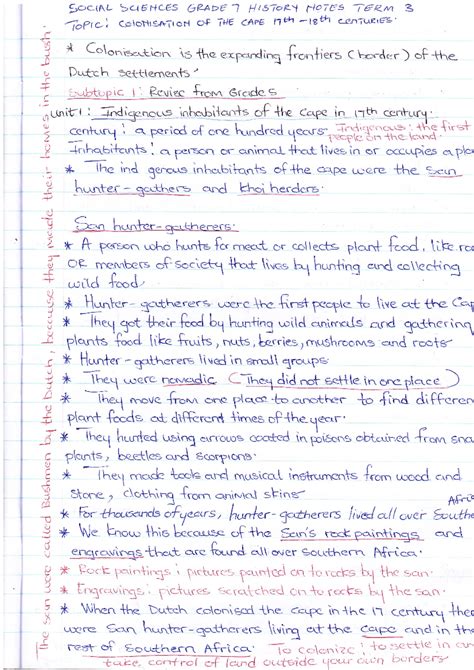 SOCIAL SCIENCES GRADE 7 HISTORY NOTES TERM 3
TOPIC: COLONISATION OF THE CAPE 17th - 18th CENTURIES.
* Colonisation is the expanding frontiers (border) of the
Dutch settlements.
Subtopic 1: Reviee from Grade 5
unit 1: Indigenous inhabitants of the Cape in 17th century.
century: a period of one hundred years. Indigenous: the first
people on the land.
Inhabitants: a person or animal that lives in or occupies a pla
* The ind genous inhabitants of the cape were the San
hunter-gathers and khoi herders.
San hunter-gatherers.
* A person who hunts for meat or collects plant food, like roo
OR members of society that lives by hunting and collecting
wild food.
* Hunter-gatherers were the first people to live at the Cap
* They got their food by hunting wild animals and gathering
plants food like fruits, nuts, berries, mushrooms and roots
* Hunter-gatherers lived in small groups.
* They were nomadic (They did not settle in one place)
* They move from one place to another to find differen
plant foods at different times of the year.
* They hunted using arrows coated in poisons obtained from sna
plants, beetles and scorpions.
* They made tools and musical instruments from wood and
stone, clothing from animal skins
Afric
* For thousands of years, hunter-gatherers lived all over Southe
* We know this because of the San's rock paintings and
engravings that are found all over Southern Africa.
* Rock paintings: pictures painted on to rocks by the san.
* Engravings: pictures scratched on to rocks by the san.
* When the Dutch colonised the cape in the 17 century thee
were San hunter-gatherers living at the cape and in the
rest of Southern Africa. To colonize: to settle in an
take control of land outside your own borders
The san were called Bushmen by the Dutch, because they made their homes in the bush.